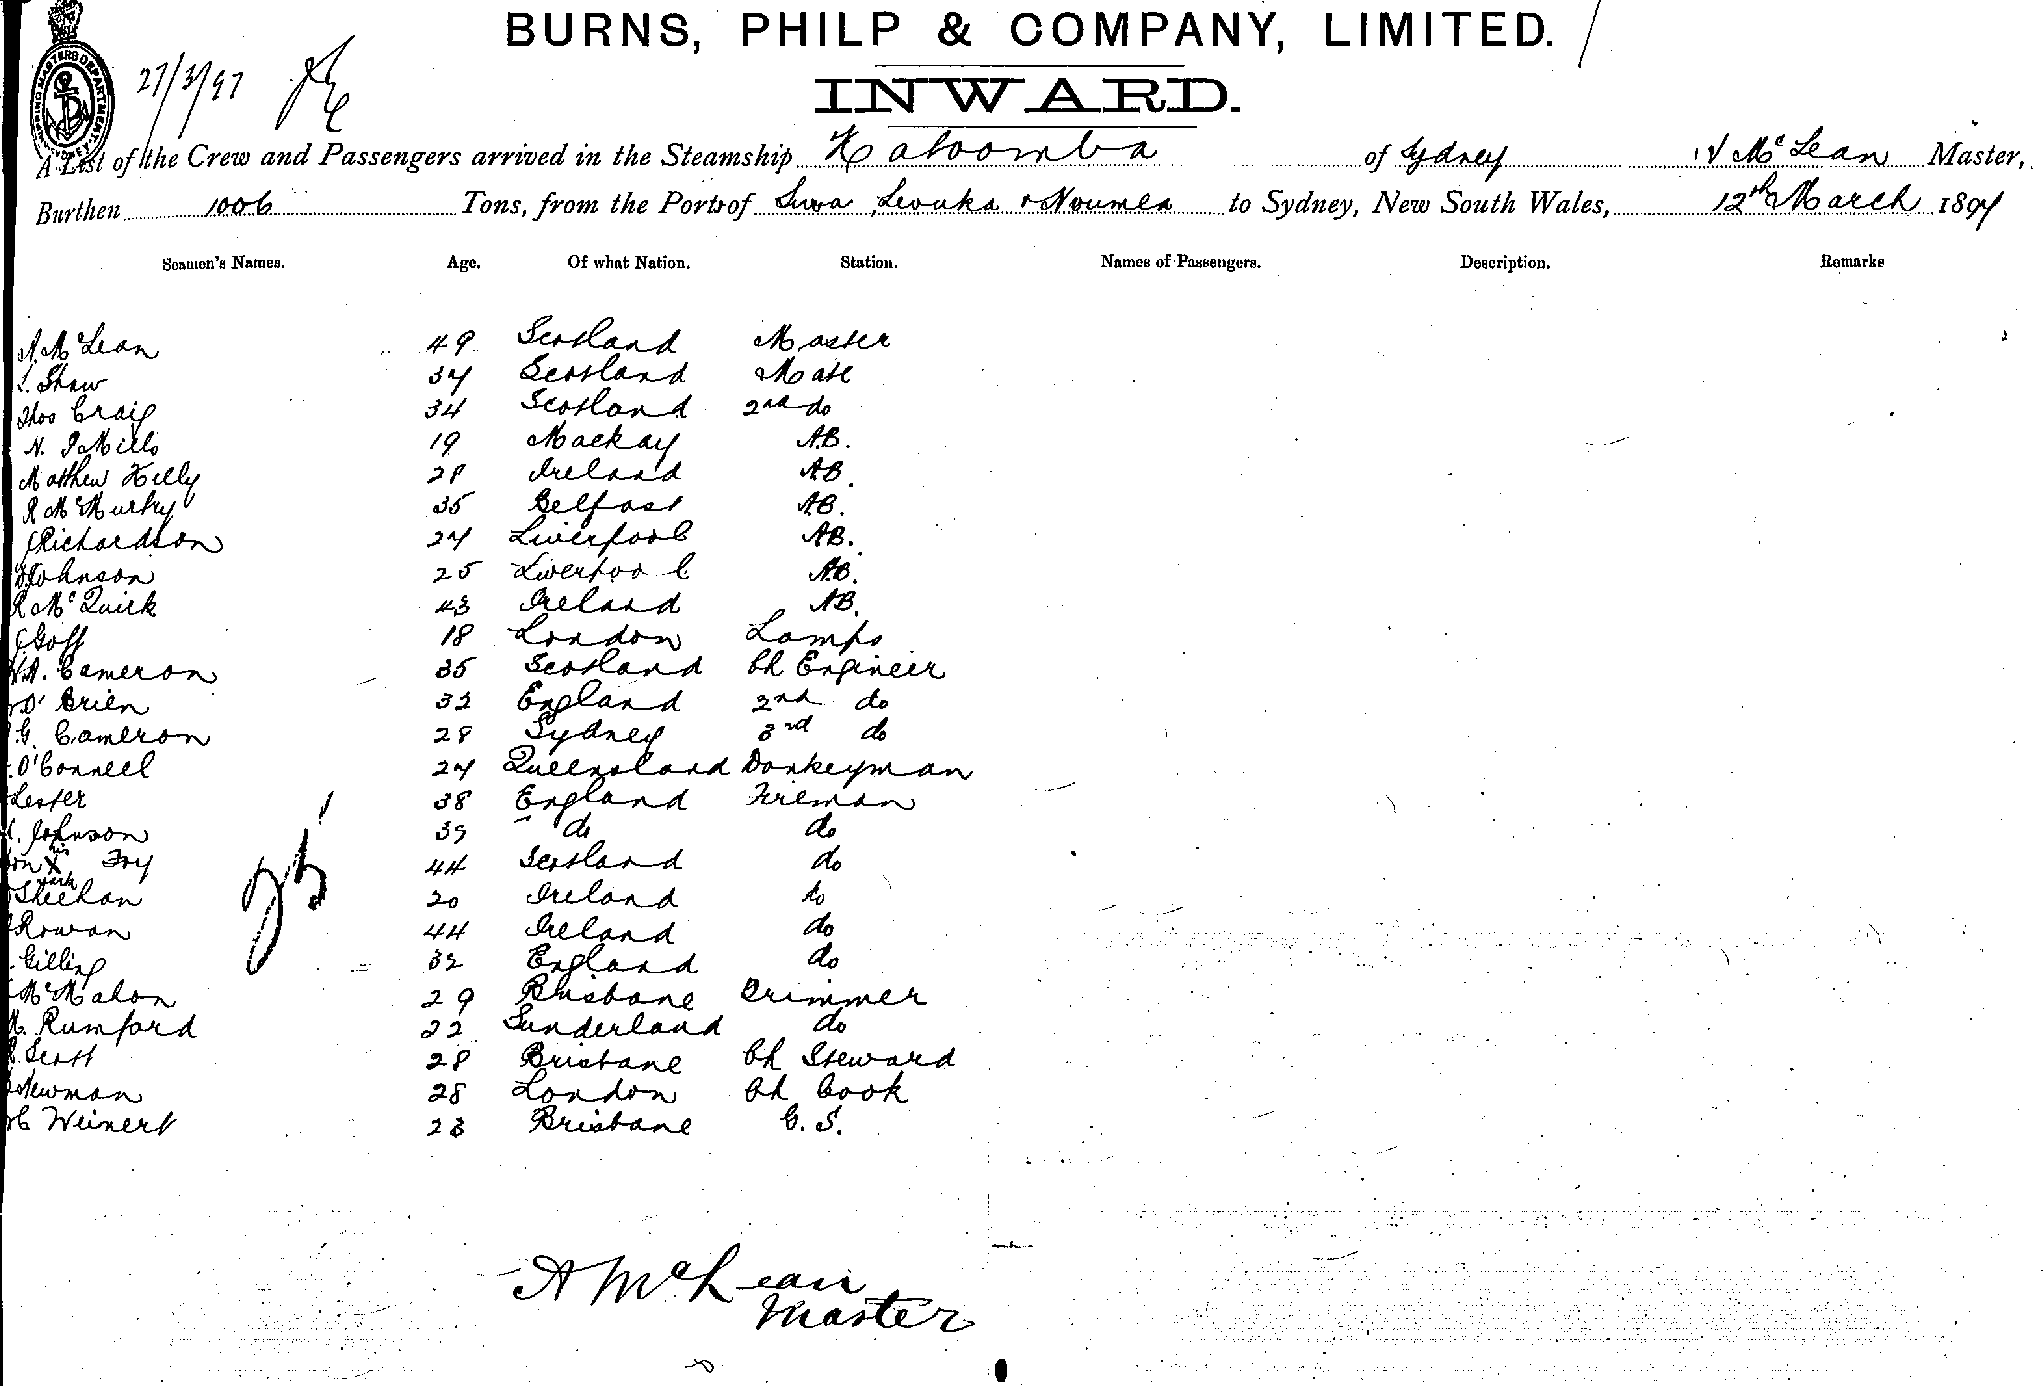 BURNS, PHILP & COMPANY, LIMITED.
27/3/97
INWARD.
A List of the Crew and Passengers arrived in the Steamship Katoomba of Sydney McLean Master,
Burthen 1006 Tons, from the Ports of Suva, Levuka & Noumea to Sydney, New South Wales, 12th March 1897
Seamen's Names. Age. Of what Nation. Station. Names of Passengers. Description. Remarks
A. McLean 49 Scotland Master
Shaw 34 Scotland Mate
Thos Craig 34 Scotland 2nd do
N. J Mills 19 Mackay AB.
Matthew Kelly 28 Ireland AB.
R McMurtry 35 Belfast AB.
Richardson 24 Liverpool AB.
Johnson 25 Liverpool AB.
R McQuirk 43 Ireland AB.
Goff 18 London Lamps
A. Cameron 35 Scotland Ch Engineer
O'Brien 32 England 2nd do
G. Cameron 28 Sydney 3rd do
O'Connell 24 Queensland Donkeyman
Lester 38 England Fireman
Johnson 39 do do
his X mark Fry 44 Scotland do
Sheehan 20 Ireland do
Rowan 44 Ireland do
Gilling 32 England do
McMahon 29 Brisbane Trimmer
Rumford 22 Sunderland do
Scott 28 Brisbane Ch Steward
Newman 28 London Ch Cook
C Weinert 23 Brisbane G. S.
25
A McLean
Master